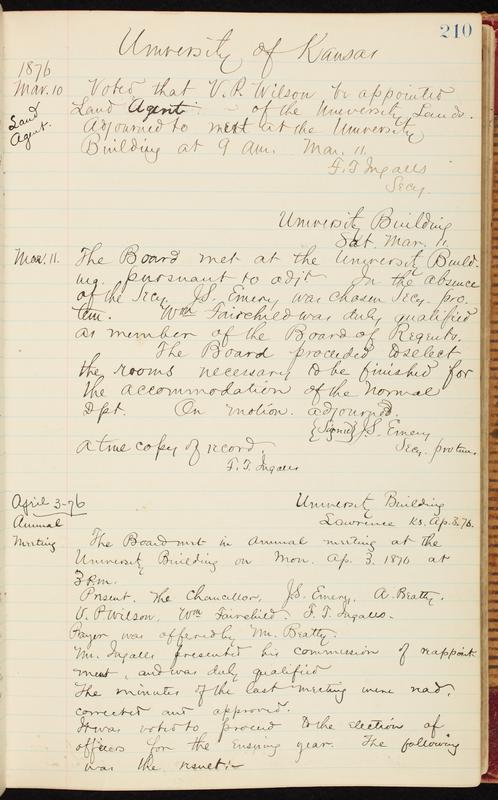 210
University of Kansas
1876
Mar. 10 Voted that V. P. Wilson be appointed
Land Agent - of the University Lands.
Land
Agent.
Adjourned to meet at the University
Building at 9 am. Mar. 11.
F. T. Ingalls
Secy.
University Building
Sat. Mar. 11
Mar. 11. The Board met at the University Build-
ing pursuant to adjt In the absence
of the Secy. J.S. Emery was chosen Secy. pro.
tem. Wm Fairchild was duly qualified
as member of the Board of Regents.
The Board proceeded to select
the rooms necessary to be finished for
the accommodation of the Normal
Dpt. On motion. adjourned.
{Signed} J.S. Emery
Secy. protem.
A true copy of record.
F. T. Ingalls
April 3-76
University Building
Lawrence Ks. Ap. 3. 76.
Annual
Meeting
The Board met in annual meeting at the
University Building on Mon. Ap. 3. 1876 at
3 P.m.
Present. The Chancellor, J.S. Emery, A. Beatty.
V. P. Wilson, Wm Fairchild. F. T. Ingalls.
Prayer was offered by Mr. Beatty.
Mr. Ingalls presented his commission of reappoint
ment, and was duly qualified
The minutes of the last meeting were read,
corrected and approved.
It was voted to proceed to the election of
officers for the ensuing year. The following
was the result:-